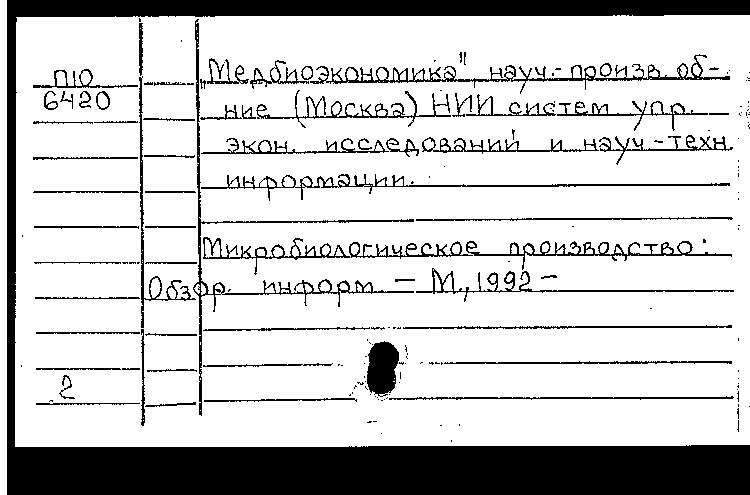 П10
6420
„Медбиоэкономика", науч.-произв. об-
ние (Москва) НИИ систем упр.
экон. исследований и науч.-техн.
информации.
Микробиологическое производство:
Обзор. информ. — М., 1992 —
2